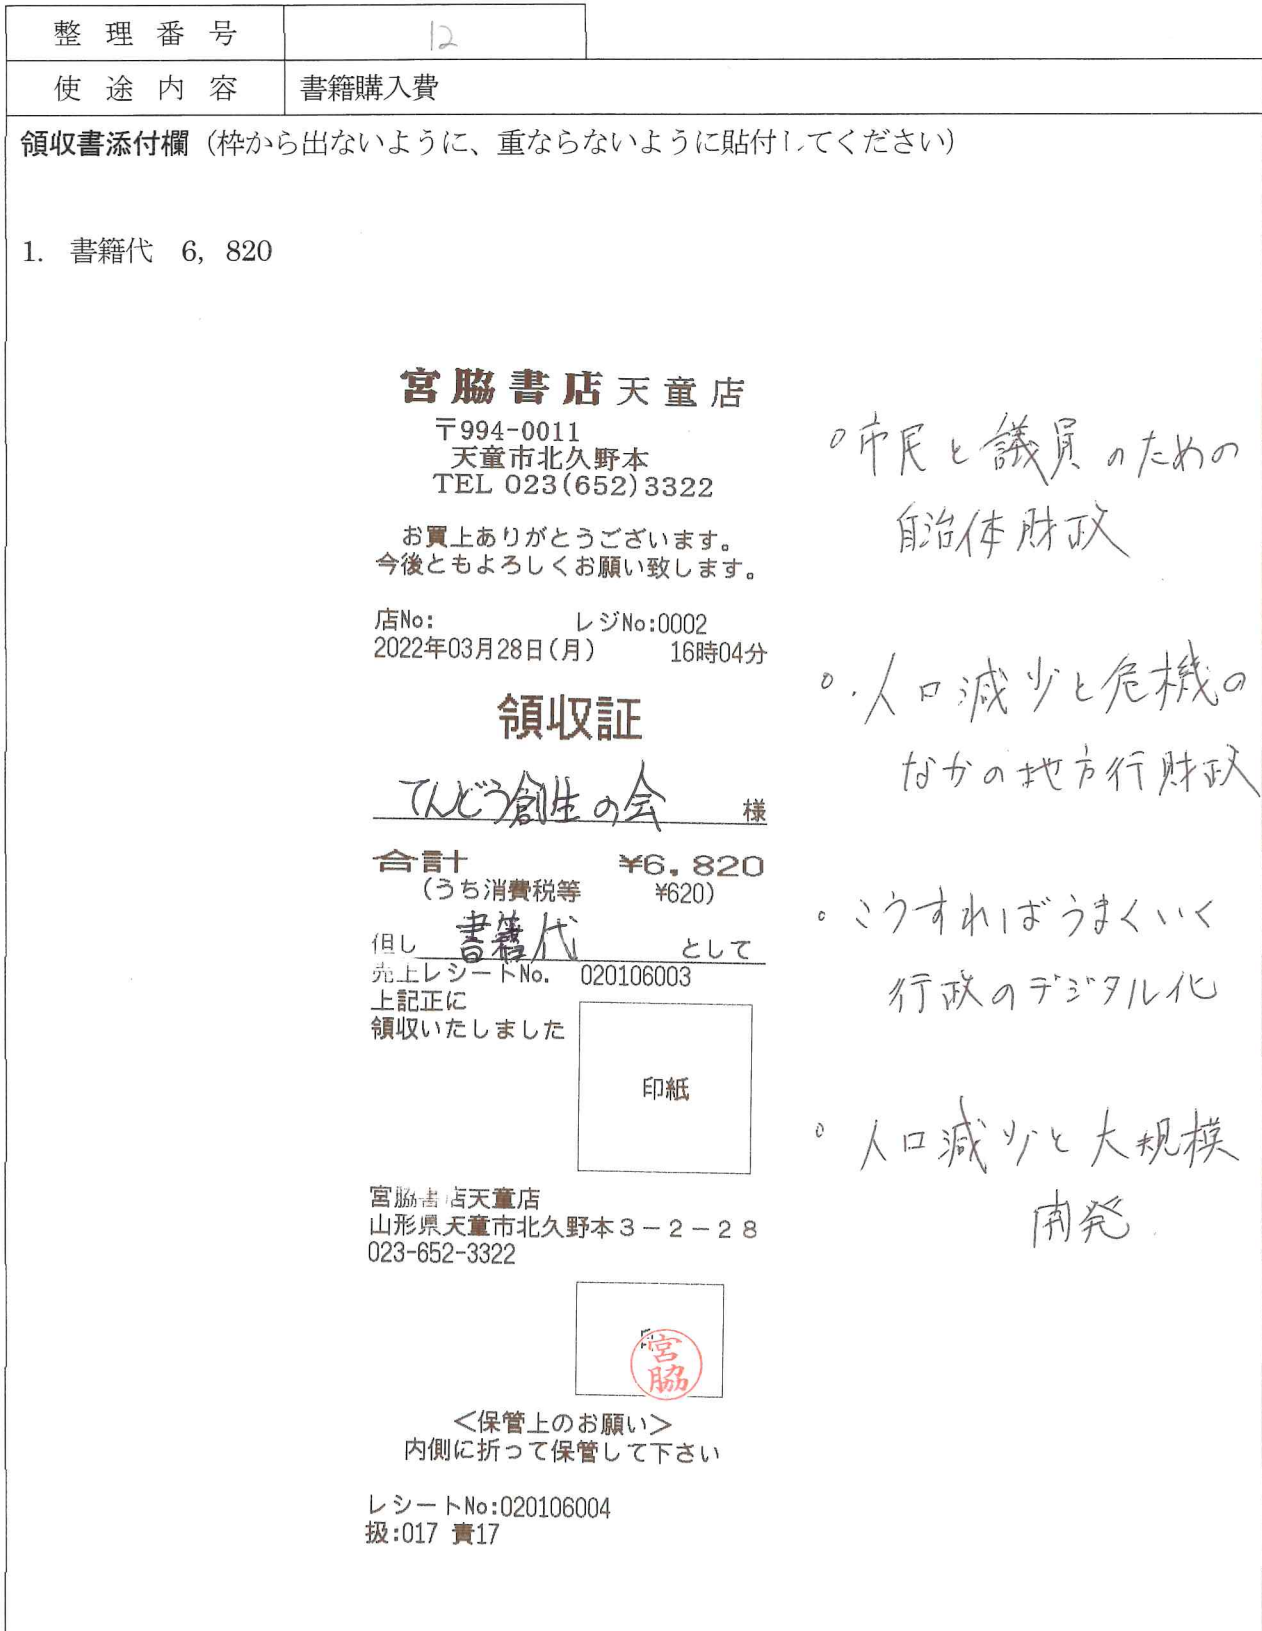 整理番号 12
使途内容 書籍購入費
領収書添付欄（枠から出ないように、重ならないように貼付してください）
1. 書籍代 6, 820
宮脇書店天童店
〒994-0011
天童市北久野本
TEL 023(652)3322
お買上ありがとうございます。
今後ともよろしくお願い致します。
店No: レジNo:0002
2022年03月28日(月) 16時04分
領収証
てんどう創生の会 様
合計 ¥6,820
(うち消費税等 ¥620)
但し 書籍代 として
売上レシートNo. 020106003
上記正に
領収いたしました
印紙
宮脇書店天童店
山形県天童市北久野本３－２－２８
023-652-3322
印
宮脇
＜保管上のお願い＞
内側に折って保管して下さい
レシートNo:020106004
扱:017 責17
○市民と議員のための
自治体財政
○人口減少と危機の
なかの地方行財政
○こうすればうまくいく
行政のデジタル化
○人口減少と大規模
開発